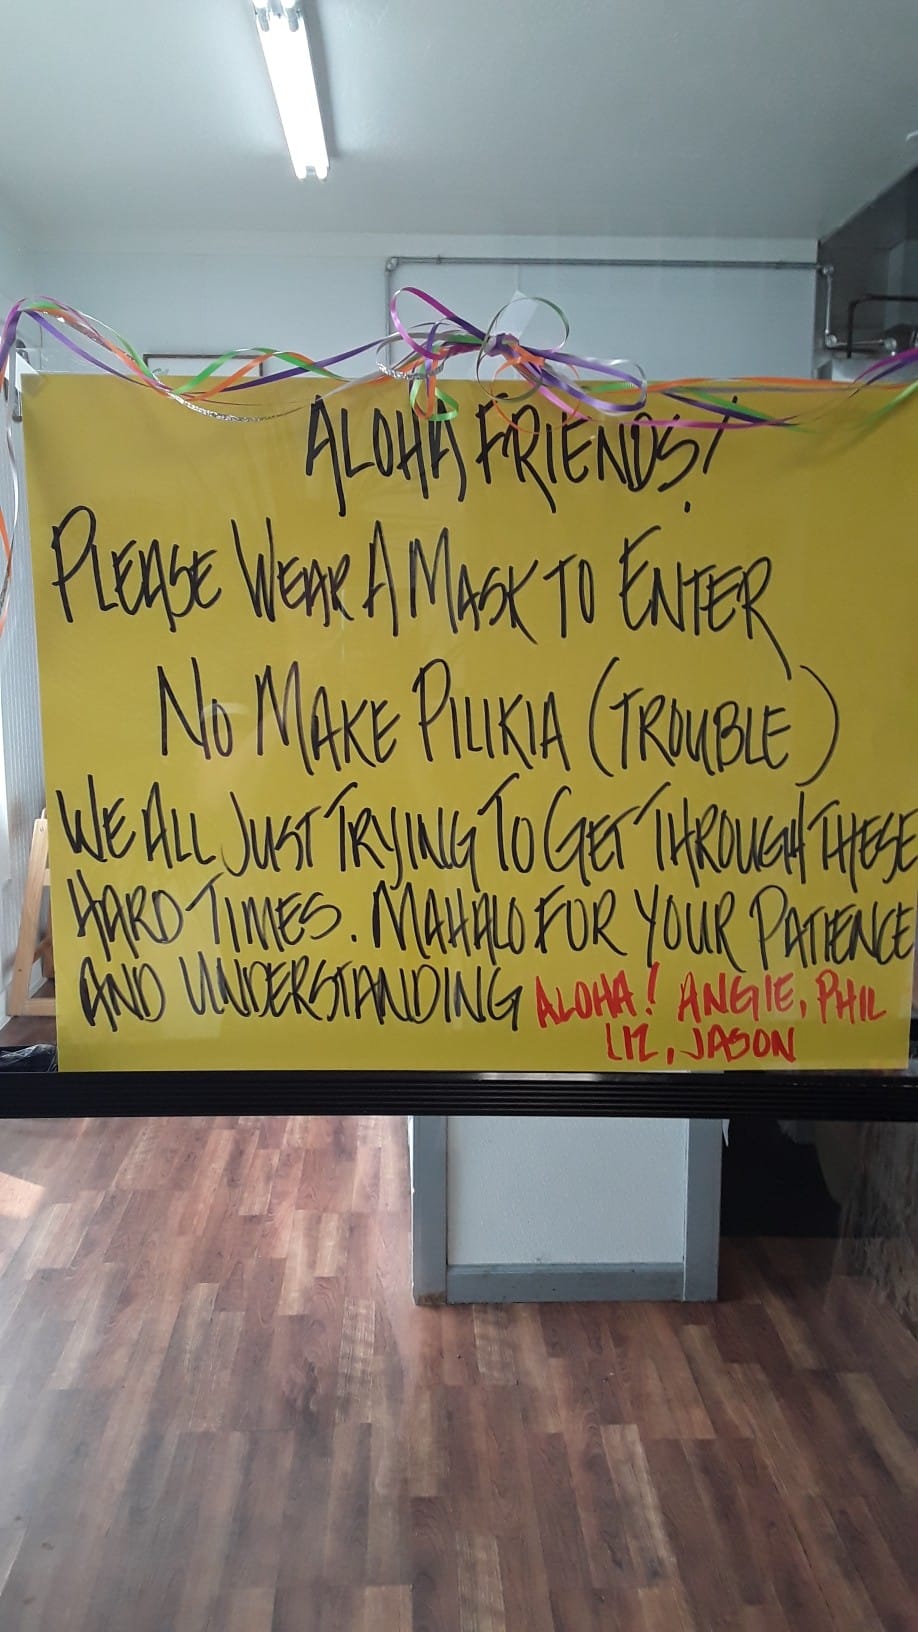 ALOHA FRIENDS!
PLEASE WEAR A MASK TO ENTER
NO MAKE PILIKIA (TROUBLE)
WE ALL JUST TRYING TO GET THROUGH THESE
HARD TIMES. MAHALO FOR YOUR PATIENCE
AND UNDERSTANDING ALOHA! ANGIE, PHIL
LIZ, JASON